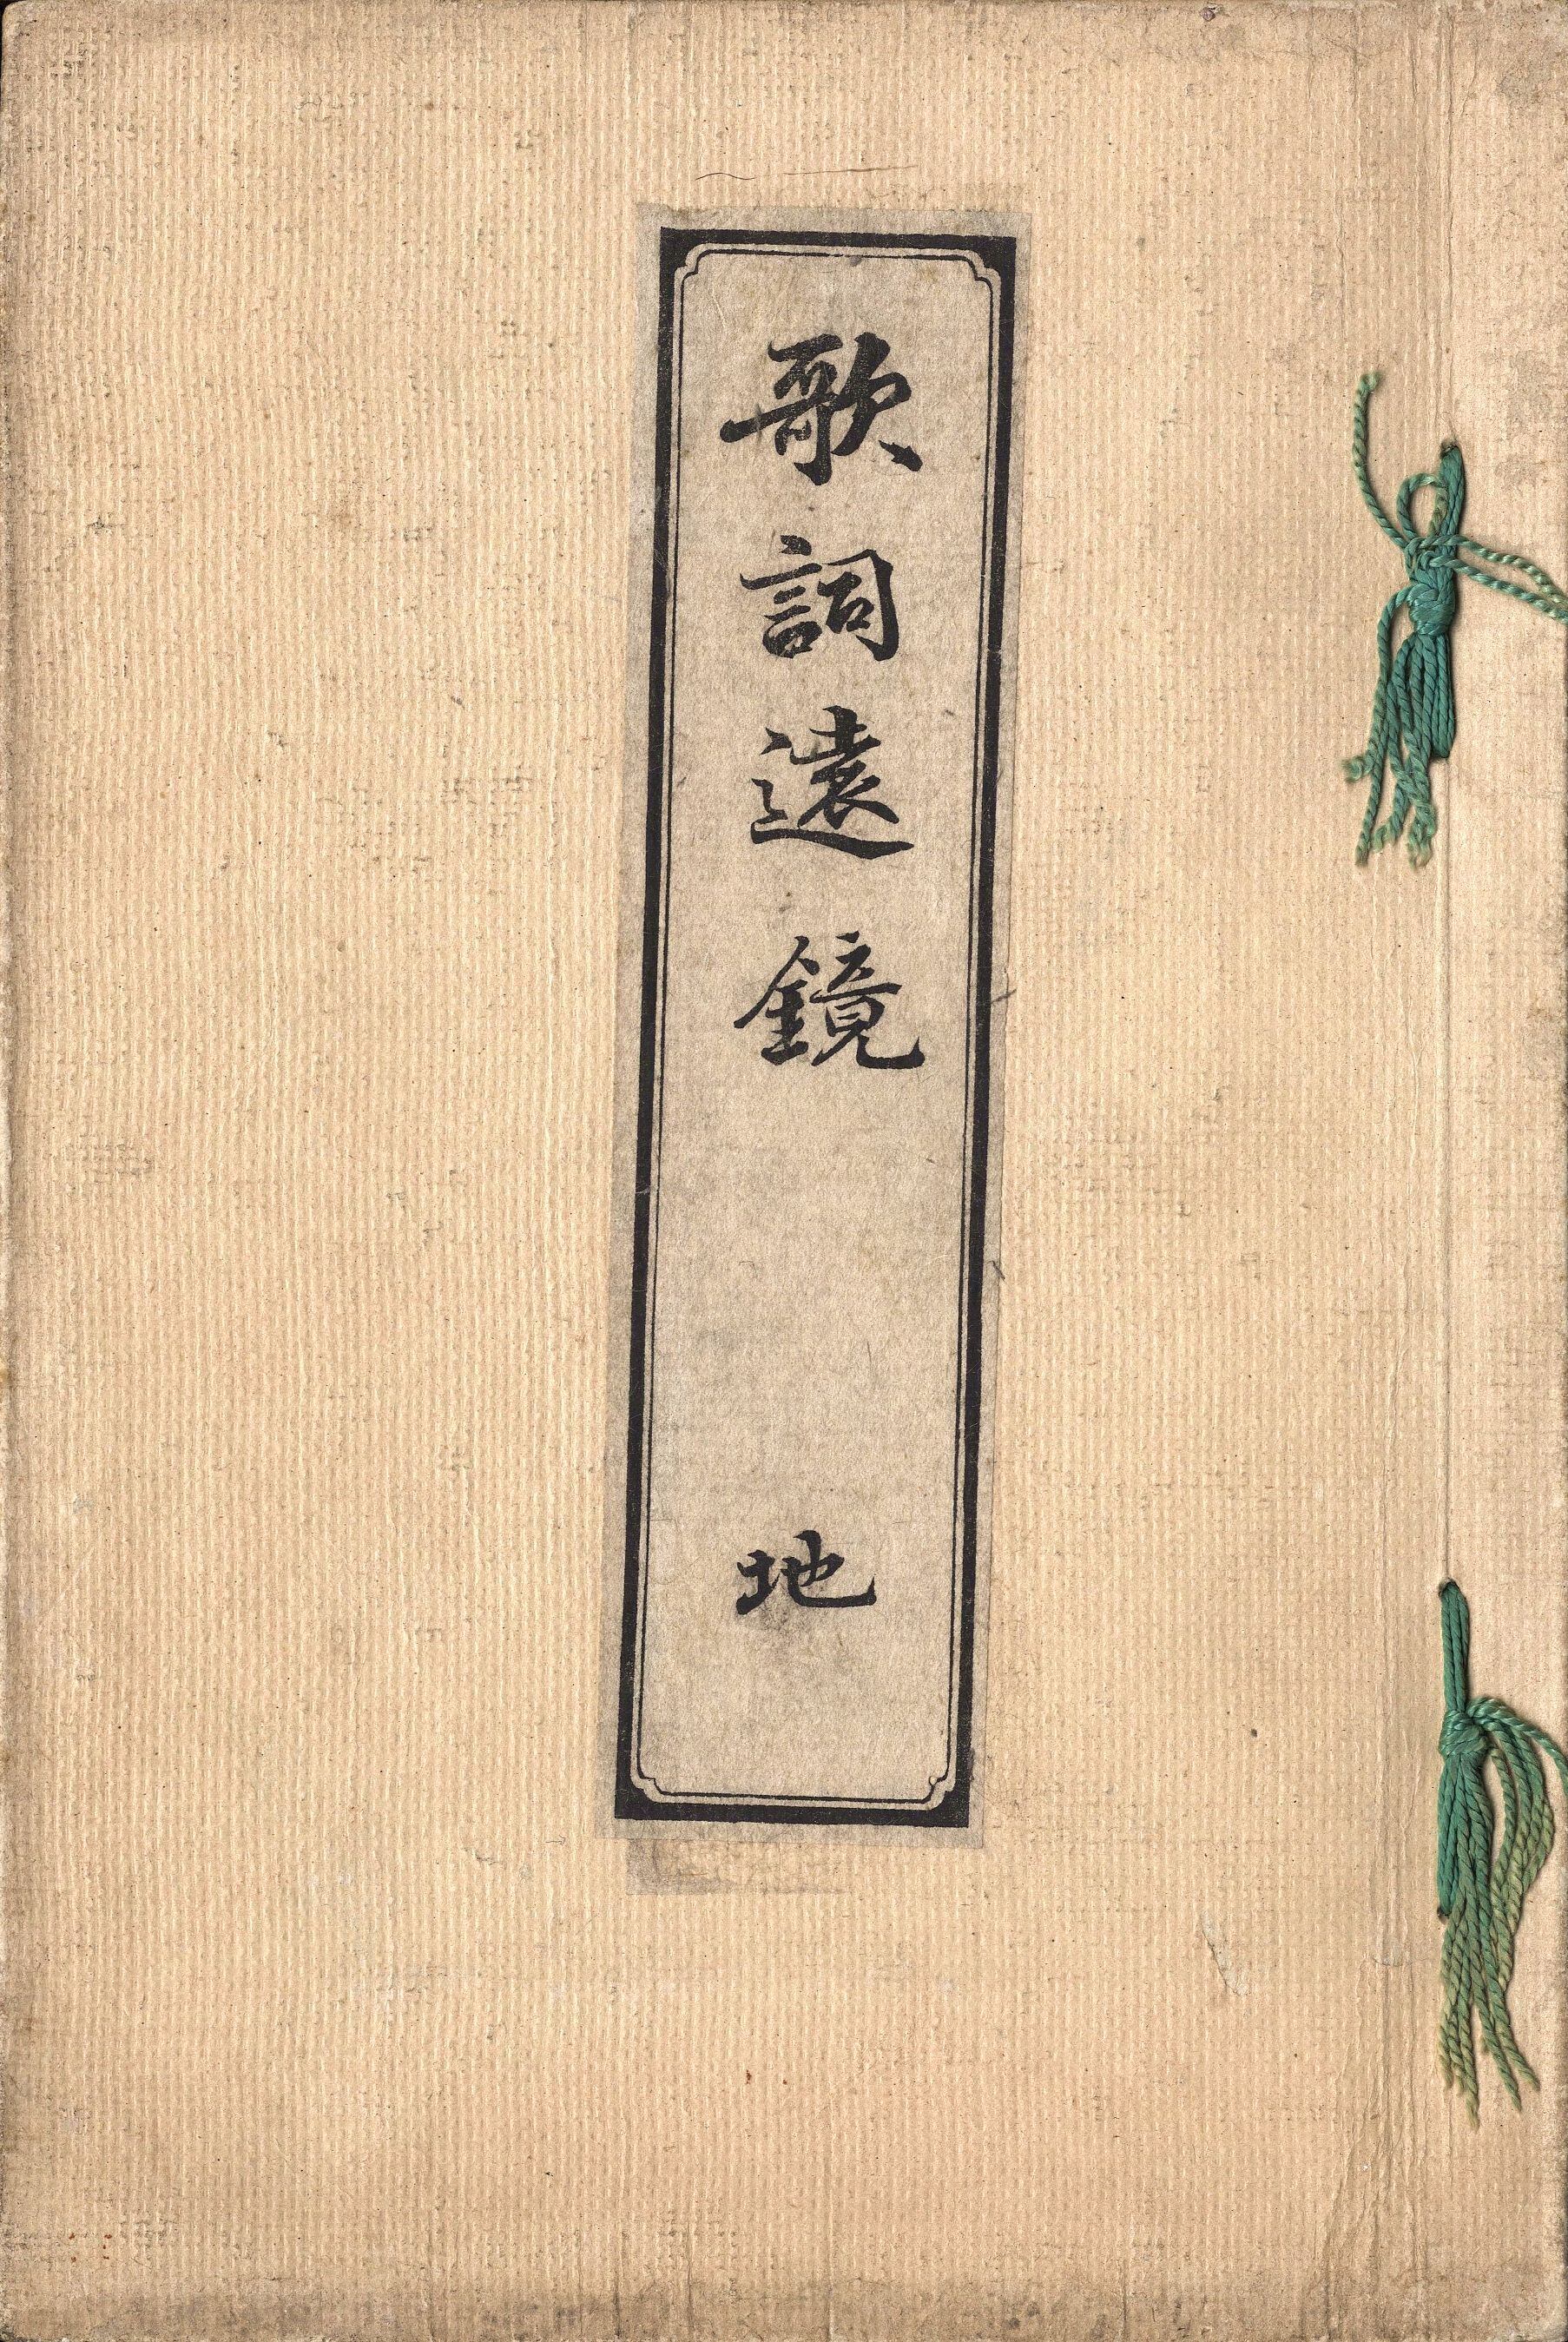 歌詞遠鏡
地